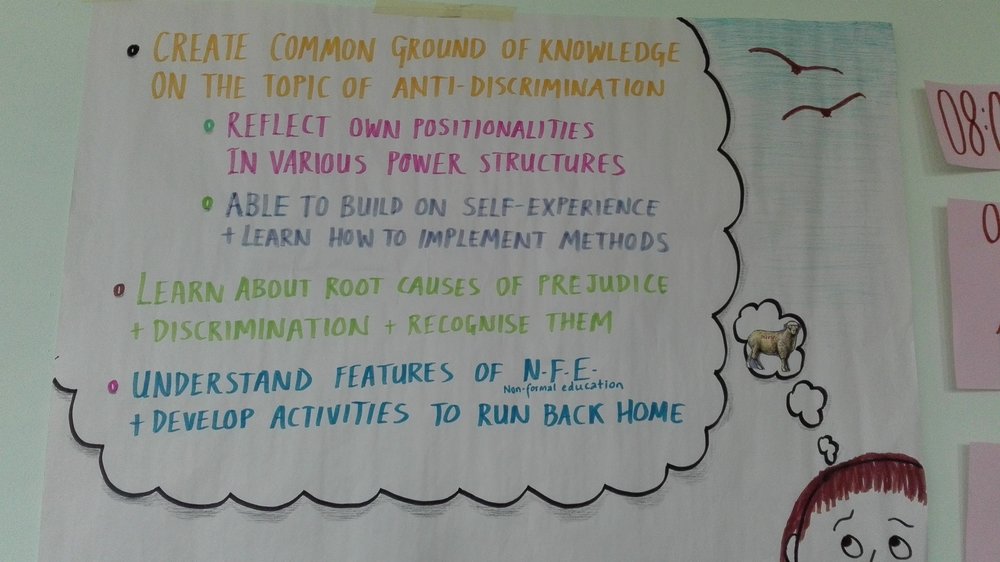 CREATE COMMON GROUND OF KNOWLEDGE
ON THE TOPIC OF ANTI-DISCRIMINATION
REFLECT OWN POSITIONALITIES
IN VARIOUS POWER STRUCTURES
ABLE TO BUILD ON SELF-EXPERIENCE
+ LEARN HOW TO IMPLEMENT METHODS
LEARN ABOUT ROOT CAUSES OF PREJUDICE
+ DISCRIMINATION + RECOGNISE THEM
UNDERSTAND FEATURES OF N-F-E-
Non-formal education
+ DEVELOP ACTIVITIES TO RUN BACK HOME